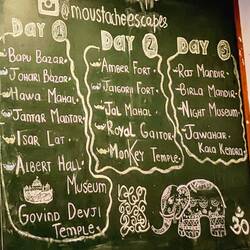 @moustacheescapes
DAY 1
BAPU BAZAR
JOHARI BAZAR
HAWA MAHAL
JANTAR MANTAR
ISAR LAT
ALBERT HALL
MUSEUM
GOVIND DEVJI
TEMPLE
DAY 2
AMBER FORT
JAIGARH FORT
JAL MAHAL
ROYAL GAITOR
MONKEY TEMPLE
DAY 3
RAJ MANDIR
BIRLA MANDIR
NIGHT MUSEUM
JAWAHAR
KALA KENDRA
ॐ